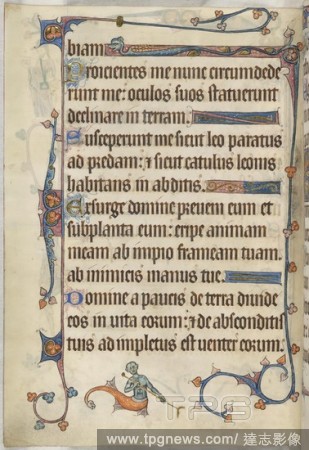 biam.
Proicientes me nunc circumdede
runt me: oculos suos statuerunt
declinare in terram.
Susceperunt me sicut leo paratus
ad predam: ⁊ sicut catulus leonis
habitans in abditis.
Exsurge domine preveni eum et
subplanta eum: eripe animam
meam ab impio frameam tuam.
ab inimicis manus tue.
Domine a paucis de terra divide
eos in vita eorum: ⁊ de absconditis
tuis adimpletus est venter eorum.
TPG
www.tpgnews.com/達志影像